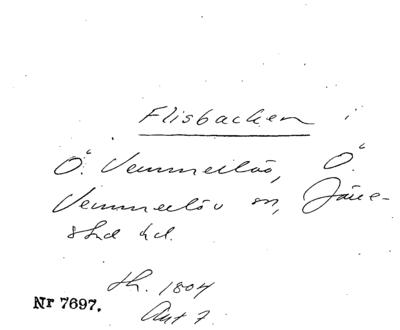 Flisbacken i
Ö. Vemmerlöv, Ö.
Vemmerlöv sn, Järre-
stad hd.
th. 1804
Akt 7
Nr 7697.